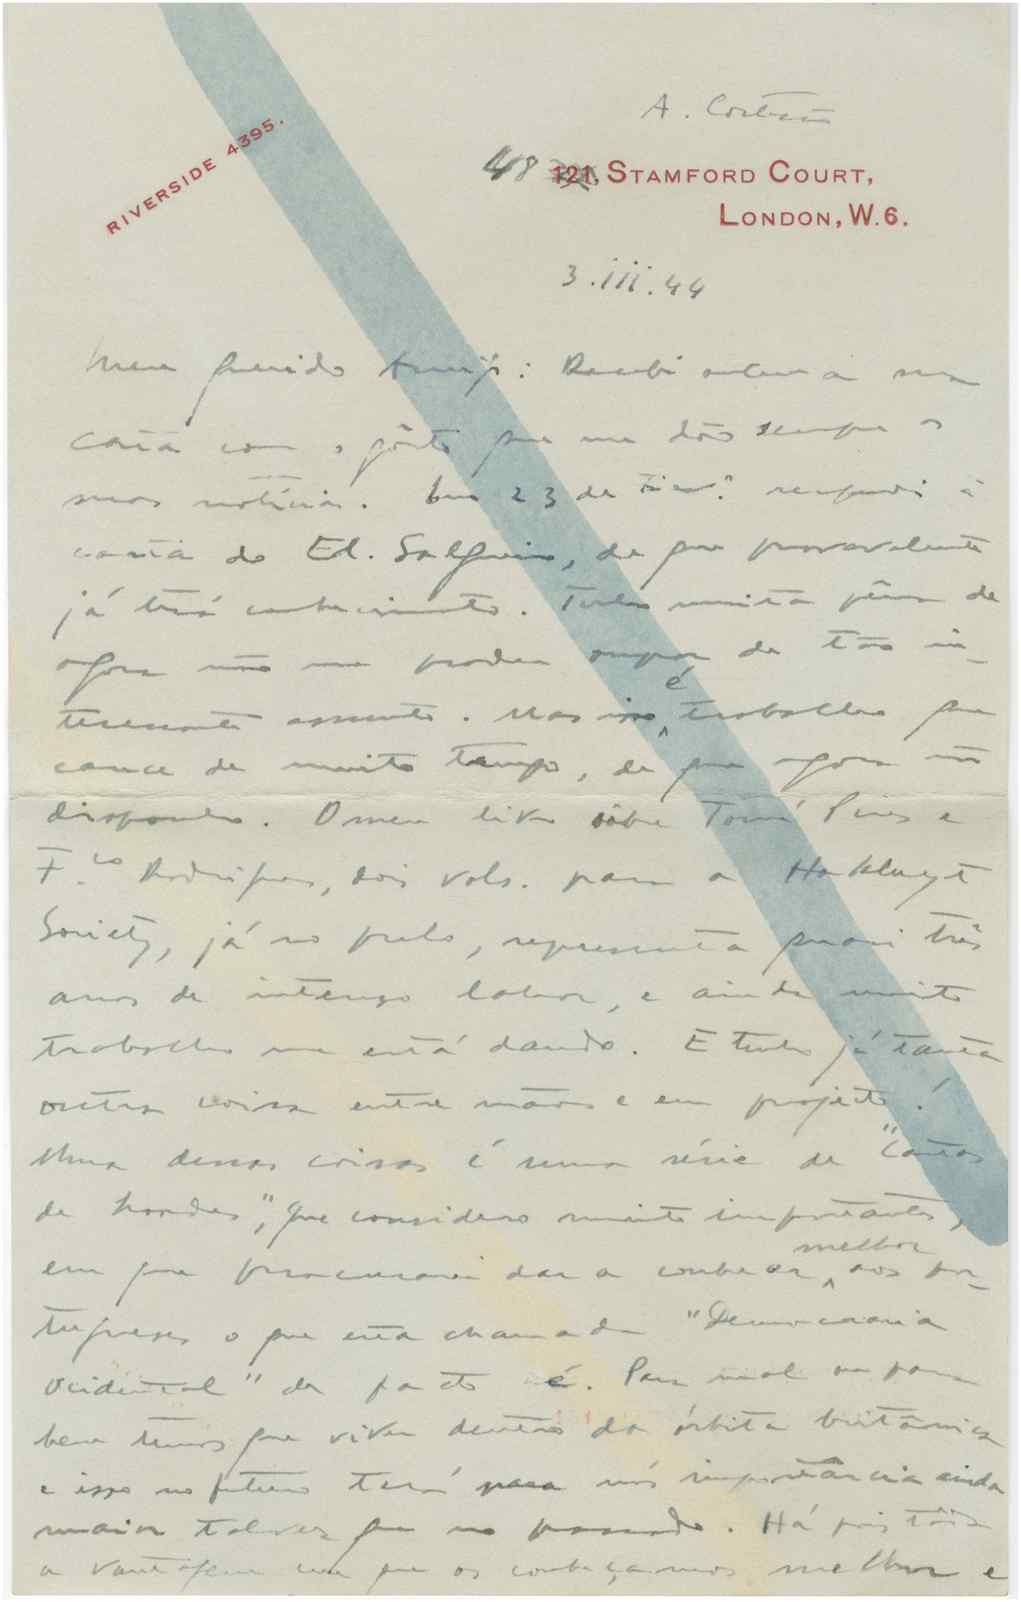 A. Cortesão
RIVERSIDE 4395.
48 121, STAMFORD COURT,
LONDON, W.6.
3.iii.44
Meu querido Amigo: Recebi ontem a sua
carta com o gôsto que me dão sempre as
suas notícias. Em 23 de Fev.º respondi à
carta do Ed. Salgueiro, de que provavelmente
já terá conhecimento. Tenho muita pêna de
agora não me poder ocupar de tão in-
teressante assunto. Mas isso é trabalho que
carece de muito tempo, de que agora não
disponho. O meu livro sôbre Tomé Pires e
F.co Rodrigues, dois vols. para a Hakluyt
Society, já no prelo, representa quasi três
anos de intenso labor, e ainda muito
trabalho me está dando. E tenho já tanta
outra coisa entre mãos e em projecto!
Uma dessas coisas é uma série de "Cartas
de Londres", que considero muito importantes,
em que procurarei dar a conhecer melhor aos por-
tugueses o que esta chamada "Democracia
Ocidental" de facto é. Para mal ou para
bem temos que viver dentro da órbita britânica
e isso no futuro terá para nós importância ainda
maior talvez que no passado. Há pois tôda
a vantagem em que os conheçamos melhor e